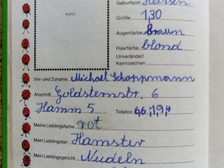 Geburtsort: Hausen
Größe 1,30
FOTO
Augenfarbe: braun
Haarfarbe: blond
Unveränderl.
Kennzeichen:
Vor- und Zuname: Michael Schoppmann
Anschrift: Goldsternstr. 6
Hamm 5 Telefon
Meine Lieblingsfarbe: rot
Mein Lieblingstier: Hamster
Mein Lieblingsgericht: Nudeln